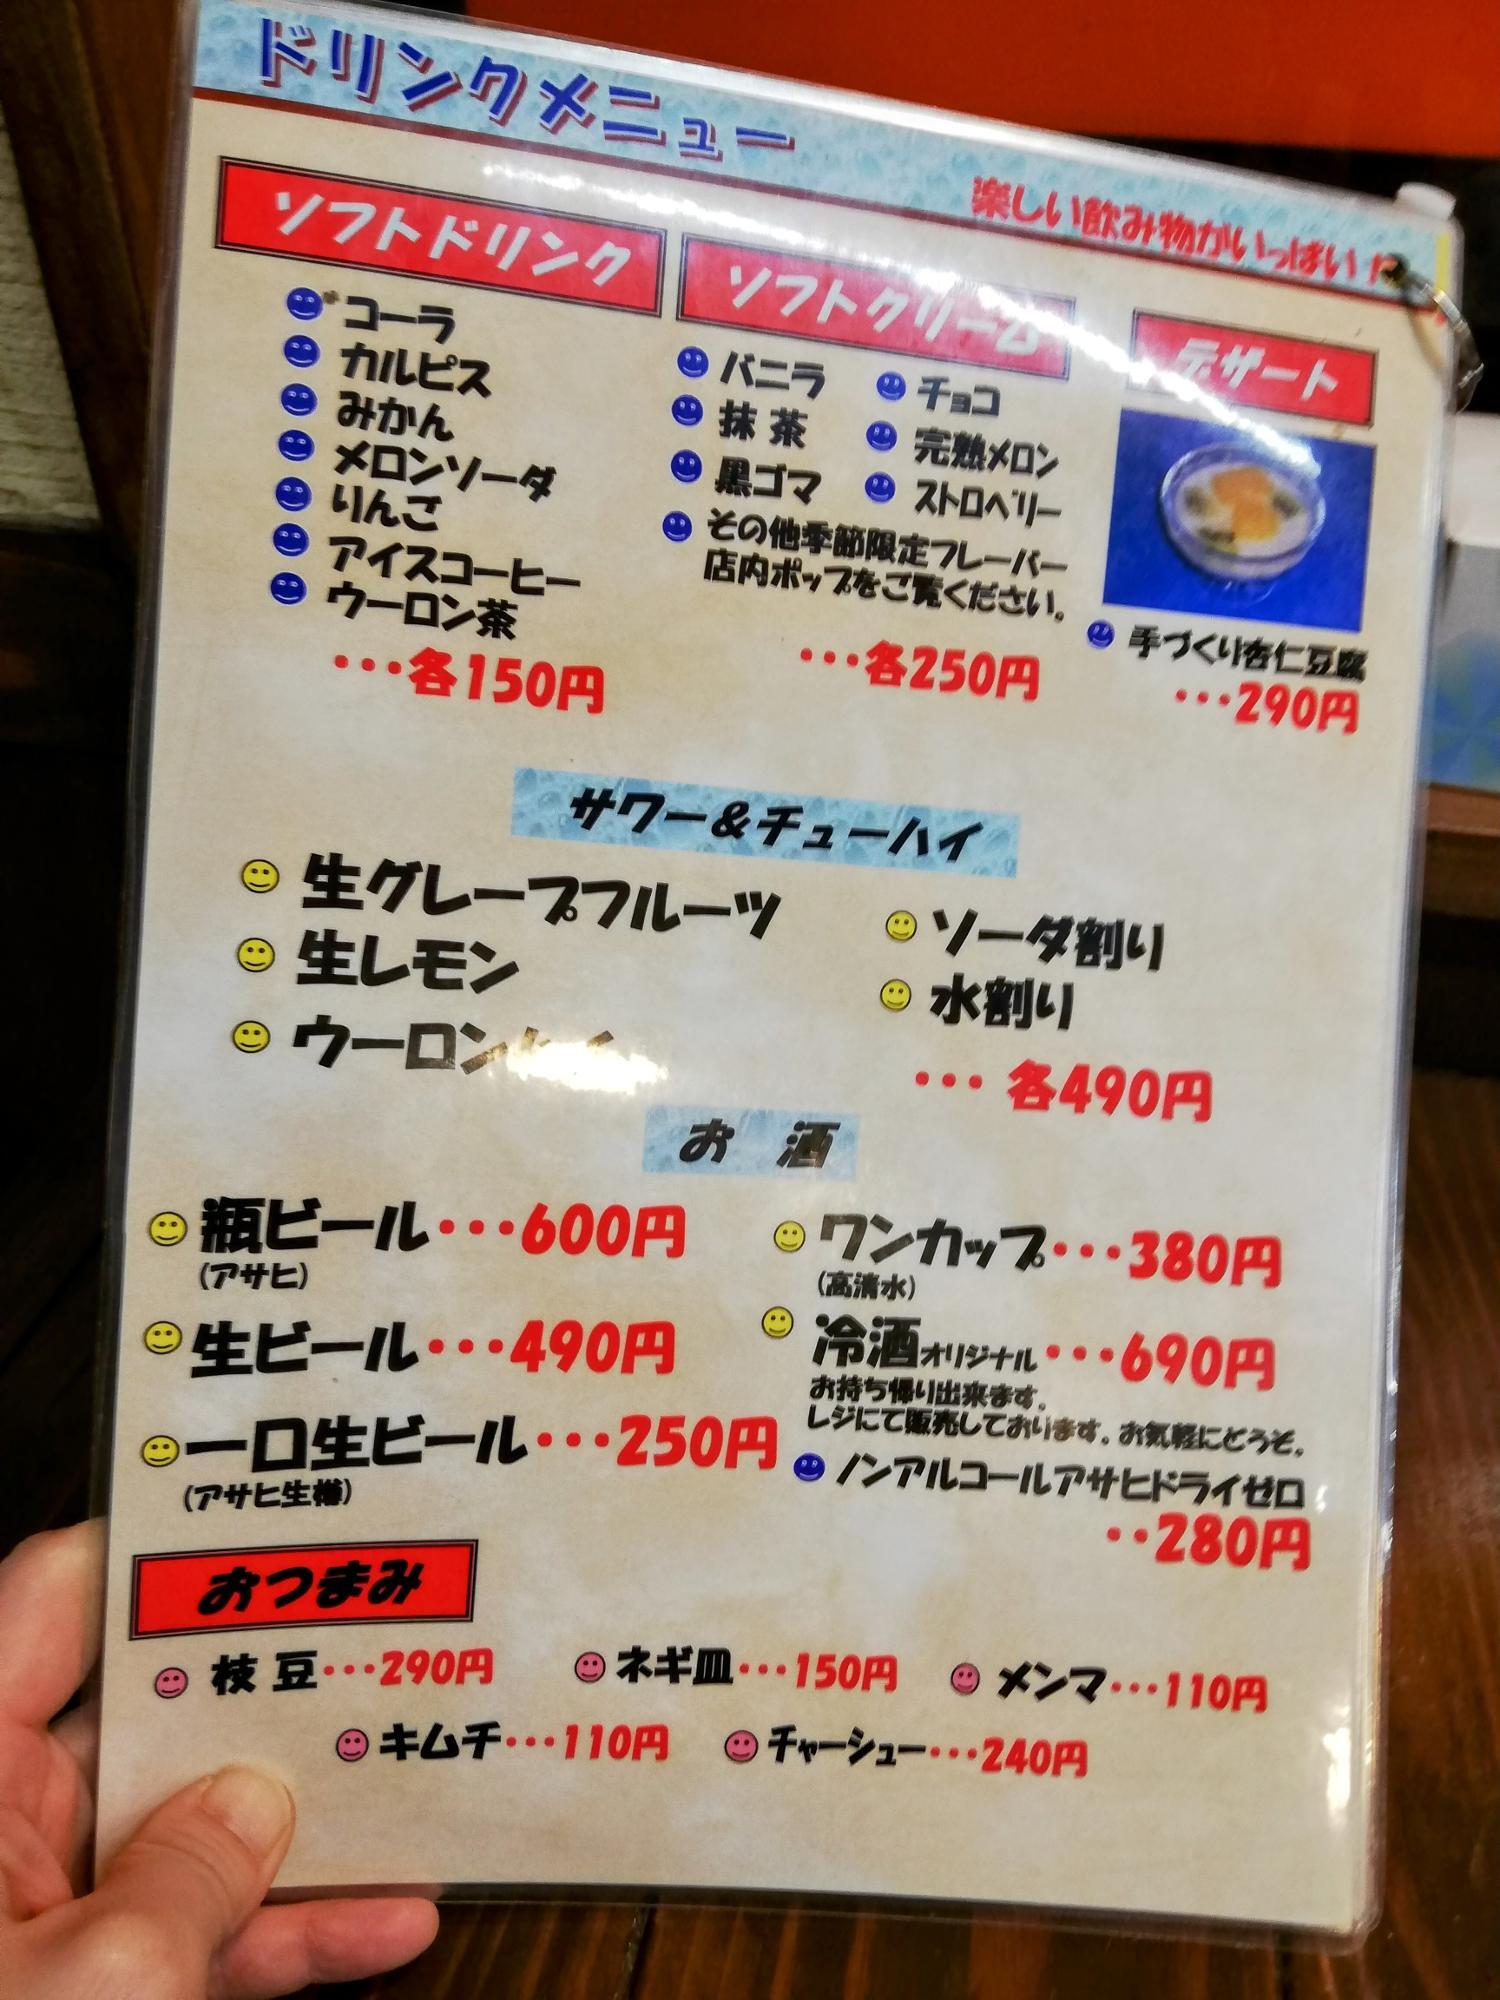 ドリンクメニュー
楽しい飲み物がいっぱい！
ソフトドリンク
コーラ
カルピス
みかん
メロンソーダ
りんご
アイスコーヒー
ウーロン茶
・・・各150円
ソフトクリーム
バニラ
抹茶
黒ゴマ
チョコ
完熟メロン
ストロベリー
その他季節限定フレーバー
店内ポップをご覧ください。
・・・各250円
デザート
手づくり杏仁豆腐
・・・290円
サワー&チューハイ
生グレープフルーツ
生レモン
ウーロン
ソーダ割り
水割り
・・・ 各490円
お 酒
瓶ビール・・・600円
(アサヒ)
生ビール・・・490円
一口生ビール・・・250円
(アサヒ生樽)
ワンカップ・・・380円
(高清水)
冷酒オリジナル・・・690円
お持ち帰り出来ます。
レジにて販売しております。お気軽にどうぞ。
ノンアルコールアサヒドライゼロ
・・280円
おつまみ
枝豆・・・290円 ネギ皿・・・150円 メンマ・・・110円
キムチ・・・110円 チャーシュー・・・240円